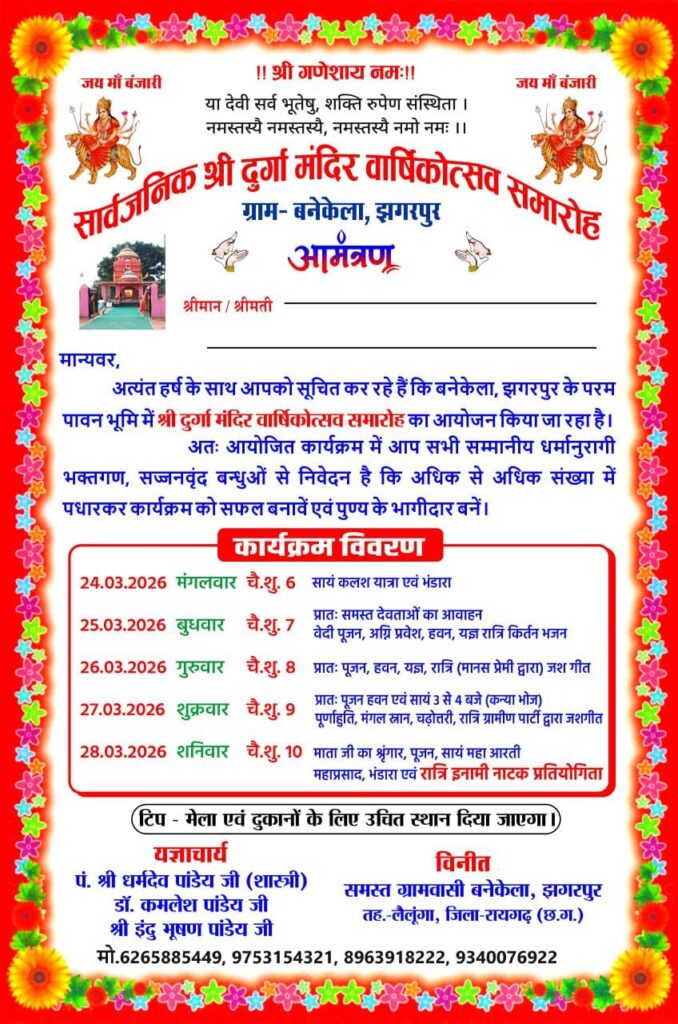 !! श्री गणेशाय नमः!!
जय माँ बंजारी
जय माँ बंजारी
या देवी सर्व भूतेषु, शक्ति रुपेण संस्थिता ।
नमस्तस्यै नमस्तस्यै, नमस्तस्यै नमो नमः ।।
सार्वजनिक श्री दुर्गा मंदिर वार्षिकोत्सव समारोह
ग्राम- बनेकेला, झगरपुर
आमंत्रण
श्रीमान / श्रीमती
मान्यवर,
अत्यंत हर्ष के साथ आपको सूचित कर रहे हैं कि बनेकेला, झगरपुर के परम
पावन भूमि में श्री दुर्गा मंदिर वार्षिकोत्सव समारोह का आयोजन किया जा रहा है।
अतः आयोजित कार्यक्रम में आप सभी सम्मानीय धर्मानुरागी
भक्तगण, सज्जनवृंद बन्धुओं से निवेदन है कि अधिक से अधिक संख्या में
पधारकर कार्यक्रम को सफल बनावें एवं पुण्य के भागीदार बनें।
कार्यक्रम विवरण
24.03.2026 मंगलवार चै.शु. 6 सायं कलश यात्रा एवं भंडारा
25.03.2026 बुधवार चै.शु. 7 प्रातः समस्त देवताओं का आवाहन
वेदी पूजन, अग्नि प्रवेश, हवन, यज्ञ रात्रि किर्तन भजन
26.03.2026 गुरुवार चै.शु. 8 प्रातः पूजन, हवन, यज्ञ, रात्रि (मानस प्रेमी द्वारा) जश गीत
27.03.2026 शुक्रवार चै.शु. 9 प्रातः पूजन हवन एवं सायं 3 से 4 बजे (कन्या भोज)
पूर्णाहुति, मंगल स्नान, चढ़ोत्तरी, रात्रि ग्रामीण पार्टी द्वारा जशगीत
28.03.2026 शनिवार चै.शु. 10 माता जी का श्रृंगार, पूजन, सायं महा आरती
महाप्रसाद, भंडारा एवं रात्रि इनामी नाटक प्रतियोगिता
टिप - मेला एवं दुकानों के लिए उचित स्थान दिया जाएगा।
यज्ञाचार्य
पं. श्री धर्मदेव पांडेय जी (शास्त्री)
डॉ. कमलेश पांडेय जी
श्री इंदु भूषण पांडेय जी
विनीत
समस्त ग्रामवासी बनेकेला, झगरपुर
तह.-लैलूंगा, जिला-रायगढ़ (छ.ग.)
मो.6265885449, 9753154321, 8963918222, 9340076922